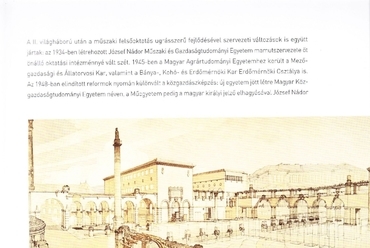 A II. világháború után a műszaki felsőoktatás ugrásszerű fejlődésével szervezeti változások is együtt
jártak: az 1934-ben létrehozott József Nádor Műszaki és Gazdaságtudományi Egyetem mamutszervezete öt
önálló oktatási intézménnyé vált szét. 1945-ben a Magyar Agrártudományi Egyetemhez került a Mező-
gazdasági és Állatorvosi Kar, valamint a Bánya-, Kohó- és Erdőmérnöki Kar Erdőmérnöki Osztálya is.
Az 1948-ban elindított reformok nyomán különvált a közgazdászképzés: új egyetem jött létre Magyar Köz-
gazdaságtudományi Egyetem néven, a Műegyetem pedig a magyar királyi jelző elhagyásával József Nádor